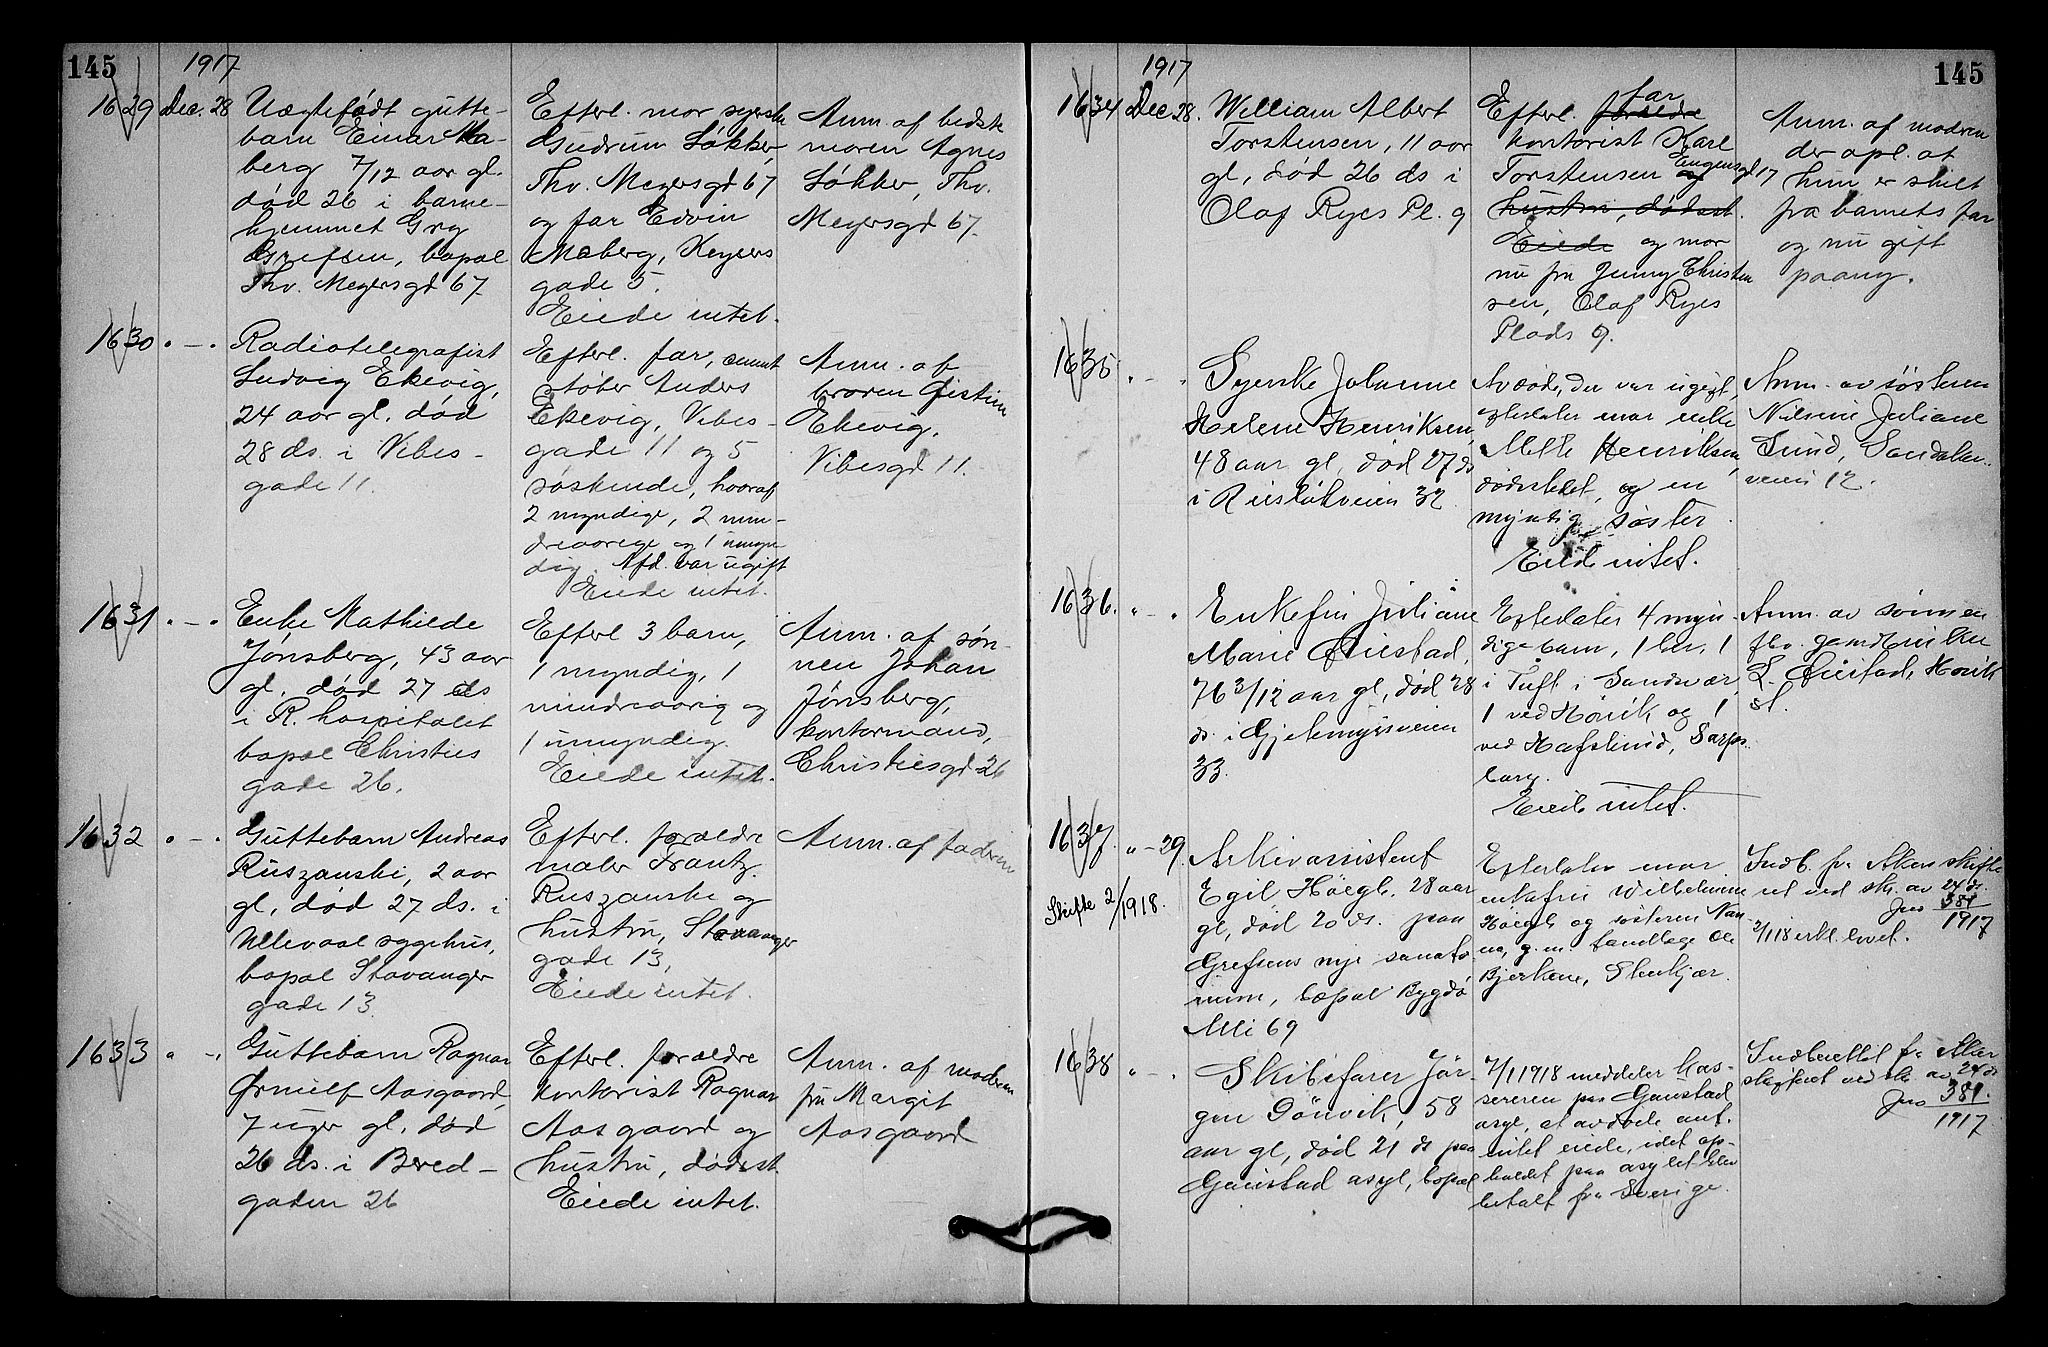 145
1917
1629 Dec. 28
Uægtefødt gutte-
barn Einar Ma-
berg 7/12 aar gl.
død 26 i barne-
hjemmet Gry
Grefsen, bopæl
Thv. Meyersgd 67
Efterl. mor syerske
Gudrun Løkker,
Thv. Meyersgd 67
og far Edvin
Maberg, Keysers
gade 5.
Eiede intet.
Anm. af bedste
moren Agnes
Løkker, Thv.
Meyersgd 67
1630 " - "
Radiotelegrafist
Ludvig Ekevig,
24 aar gl. død
28 ds. i Vibes-
gade 11.
Efterl. far,
støber Anders
Ekevig, Vibes-
gade 11 og 5
søskende, hvoraf
2 myndige, 2 min-
dreaarige og 1 umyn-
dig. Afd. var ugift
Eiede intet.
Anm. af
broren Øistein
Ekevig,
Vibesgd 11.
1631 " - "
Enke Mathilde
Jønsberg, 43 aar
gl. død 27 ds
i R. hospitalet
bopæl Christies
gade 26.
Efterl 3 barn,
1 myndig, 1
mindreaarig og
1 umyndig.
Eiede intet.
Anm. af søn-
nen Johan
Jønsberg,
kontormand,
Christiesgd 26
1632 " - "
Guttebarn Andreas
Ruszanski, 2 aar
gl, død 27 ds. i
Ullevaal sygehus,
bopæl Stavanger
gade 13.
Efterl. forældre
maler Frantz
Ruszanski og
hustru, Stavanger
gade 13,
Eiede intet.
Anm. af faderen
1633 " - "
Guttebarn Ragnar
Ørnulf Aasgaard,
7 uger gl, død
26 ds. i Bred-
gaden 26
Efterl. forældre
kontorist Ragnar
Aasgaard og
hustru, dødsst.
Eiede intet.
Anm. af moderen
fru Margit
Aasgaard
145
1917
1634 Dec 28.
William Albert
Torstensen, 11 aar
gl, død 26 ds i
Olaf Ryes Pl. 9
far
Efterl. forældre
kontorist Karl
Torstensen og Eugeniesgd 17
hustru, dødsst.
Eiede og mor
nu fru Jenny Christen
sen, Olaf Ryes
Plads 9.
Anm. af modren
der opl. at
hun er skilt
fra barnets far
og nu gift
paany.
1635 " - "
Syerske Johanne
Helene Henriksen,
48 aar gl, død 27 ds
i Ruseløkveien 32
Avdøde, der var ugift,
efterlater mor enke
Mette Henriksen,
dødsstedet, og en
myndig søster
Eiede intet.
Anm. av søsteren
Nilsine Juliane
Lund, Sandaker-
veien 12.
1636. " - "
Enkefru Juliane
Marie Øiestad,
76 3/12 aar gl, død 28
ds. i Gjetemyrsveien
33.
Efterlater 4 myn-
dige barn, 1 her, 1
i Tuft i Sandsvær,
1 ved Hønik og 1
ved Hafslund, Sarps
borg.
Eiede intet.
Anm. av sønnen
L. Øiestad, Hønik
st.
1637. " - 29.
Skifte 2/1 1918.
Arkivassistent
Egil Høegh, 28 aar
gl, død 20 ds. paa
Grefsens nye sanato-
rium, bopæl Bygdø
Alle 69
Efterlater mor
enkefru Wilhelmine
Høegh og søsteren Nan-
na, g. m. tandlæge Ole
Bjerkene, Stenkjær.
Indb. fra Aker skifte
ret ved skr. av 24 ds.
Jno 381/1917
2/1 18 erkl. lovet.
1638 " - "
Skibsfører Jør-
gen Gönvik, 58
aar gl, død 21 ds paa
Gaustad asyl, bopæl
7/1 1918 meddeler kas-
sereren paa Gaustad
asyl, at avdøde ant.
intet eiede, idet op-
holdet paa asylet blev
betalt fra Sverige.
Indberettet fra Aker
skifteret ved skr. av 24 ds
Jno 381./1917